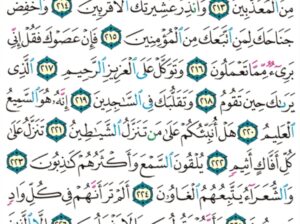 مِنَ ٱلۡمُعَذَّبِينَ ٢١٣ وَأَنذِرۡ عَشِيرَتَكَ ٱلۡأَقۡرَبِينَ ٢١٤ وَٱخۡفِضۡ
جَنَاحَكَ لِمَنِ ٱتَّبَعَكَ مِنَ ٱلۡمُؤۡمِنِينَ ٢١٥ فَإِنۡ عَصَوۡكَ فَقُلۡ إِنِّي
بَرِيٓءٞ مِّمَّا تَعۡمَلُونَ ٢١٦ وَتَوَكَّلۡ عَلَى ٱلۡعَزِيزِ ٱلرَّحِيمِ ٢١٧ ٱلَّذِي
يَرَىٰكَ حِينَ تَقُومُ ٢١٨ وَتَقَلُّبَكَ فِي ٱلسَّٰجِدِينَ ٢١٩ إِنَّهُۥ هُوَ ٱلسَّمِيعُ
ٱلۡعَلِيمُ ٢٢٠ هَلۡ أُنَبِّئُكُمۡ عَلَىٰ مَن تَنَزَّلُ ٱلشَّيَٰطِينُ ٢٢١ تَنَزَّلُ عَلَىٰ
كُلِّ أَفَّاكٍ أَثِيمٖ ٢٢٢ يُلۡقُونَ ٱلسَّمۡعَ وَأَكۡثَرُهُمۡ كَٰذِبُونَ ٢٢٣
وَٱلشُّعَرَآءُ يَتَّبِعُهُمُ ٱلۡغَاوُۥنَ ٢٢٤ أَلَمۡ تَرَ أَنَّهُمۡ فِي كُلِّ وَادٖ